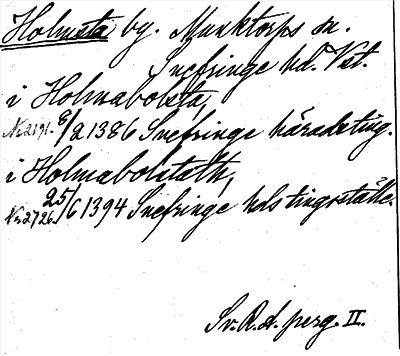 Holmsta by. Munktorps sn.
Snefringe hd. Vst.
i Holmabolsta,
N. 2191. 8/2 1386 Snefringe häradsting.
i Holmabolstath,
N. 2726. 25/6 1394 Snefringe hds tingsställe.
Sv. R. A. perg. II.